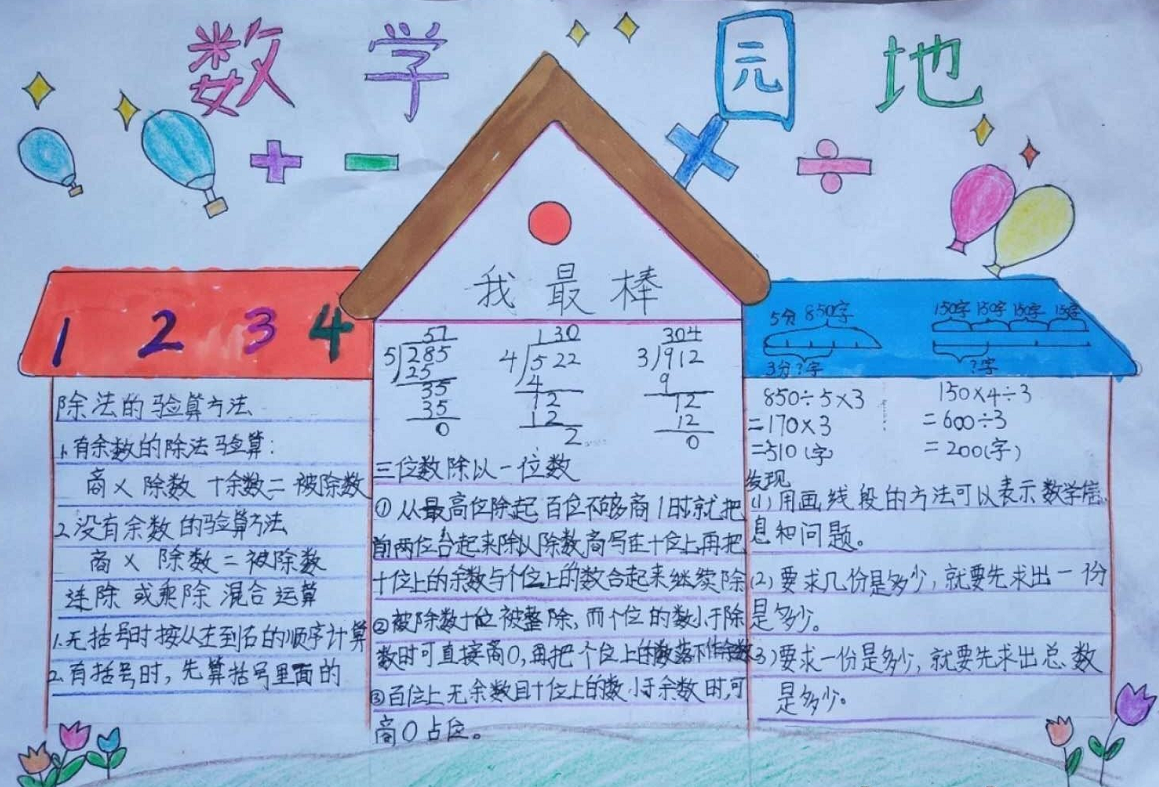 数学园地
+ - × ÷
1 2 3 4
除法的验算方法
1.有余数的除法验算:
商×除数+余数=被除数
2.没有余数的验算方法
商×除数=被除数
连除或乘除混合运算
1.无括号时按从左到右的顺序计算
2.有括号时,先算括号里面的
我最棒
57
5 285
25
35
35
0
130
4 522
4
12
12
2
304
3 912
9
12
12
0
三位数除以一位数
①从最高位除起百位不够商1时就把
前两位合起来除以除数商写在十位上再把
十位上的余数与个位上的数合起来继续除
②被除数十位被整除,而个位的数小于除
数时可直接商0,再把个位上的数落下作余数
③百位上无余数且十位上的数小于余数时,可
商0占位。
5分 850字
3分?字
150字 150字 150字 150字
?字
850÷5×3
=170×3
=510(字)
150×4÷3
=600÷3
=200(字)
发现
(1)用画线段的方法可以表示数学信
息和问题。
(2)要求几份是多少,就要先求出一份
是多少。
(3)要求一份是多少,就要先求出总数
是多少。